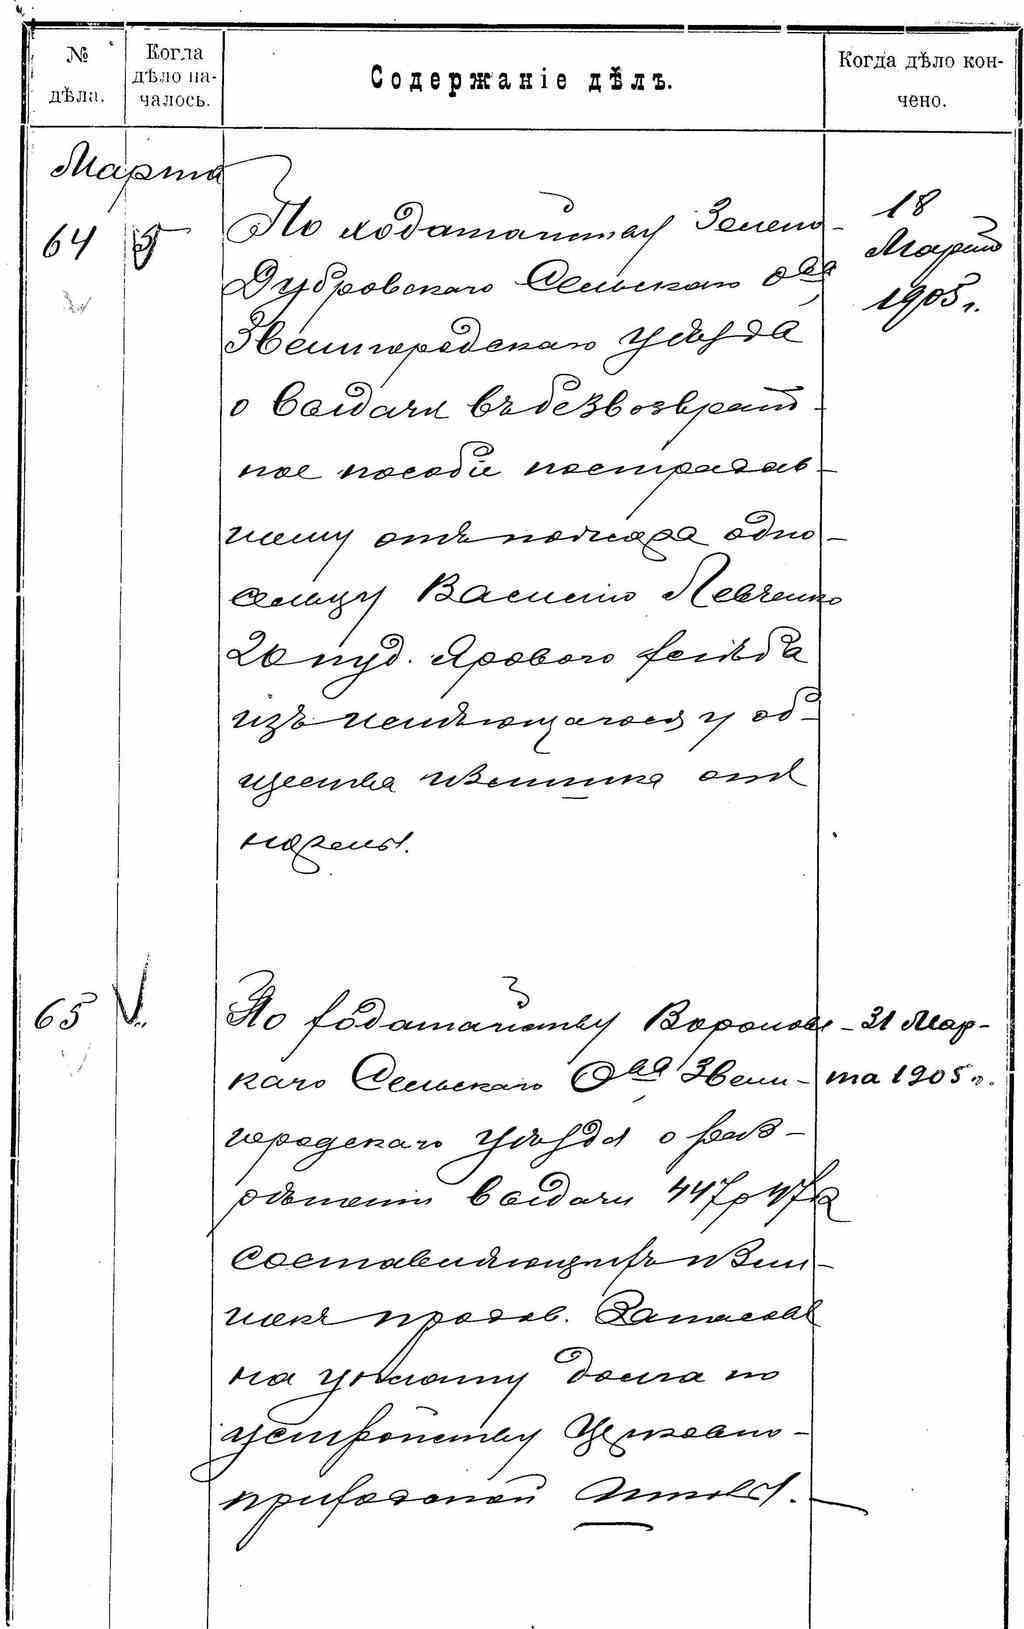 № дѣла.
Когда дѣло на-чалось.
Содержаніе дѣлъ.
Когда дѣло кон-чено.
Марта
64
5
По ходатайству Зелено-
Дубровскаго Сельскаго О-ва
Звенигородскаго уѣзда
о выдачи въ безвозврат-
ное пособіе пострадав-
шему отъ пожара одно-
сельцу Василію Левченко
20 пуд. Ярового хлѣба
изъ имѣющагося у об-
щества излишка отъ
нормы.
18
Марта
1905 г.
65
По ходатайству Воронов-
скаго Сельскаго О-ва Звени-
городскаго уѣзда о раз-
рѣшеніи выдачи 447 р 47 к
составляющихъ изли-
шекъ продов. Запасовъ
на уплату долга по
устройству Церковно-
приходской школы.
31 Мар-
та 1905 г.